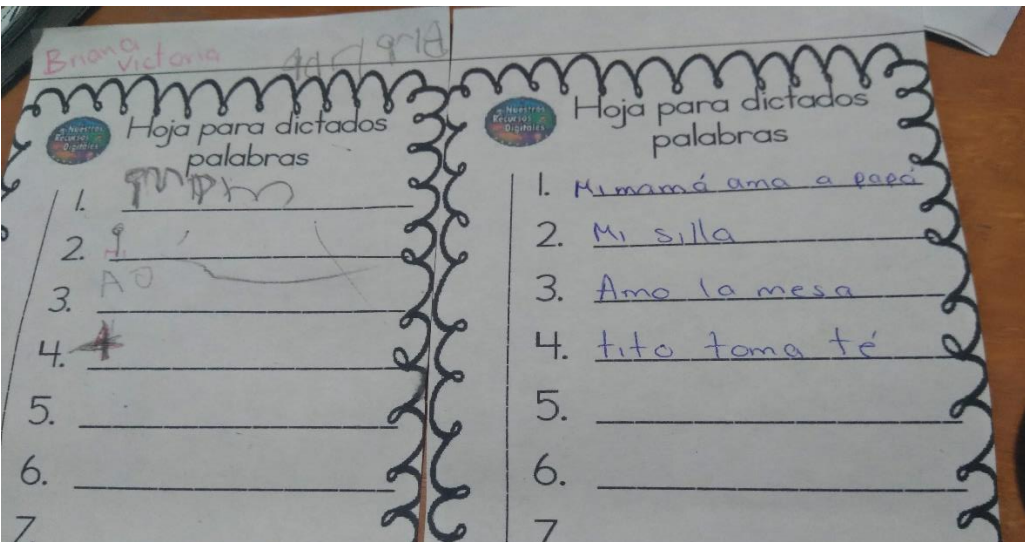 Briana
Victoria
Nuestros
Recursos
Digitales
Hoja para dictados
palabras
1.
2.
3. A O
4.
5.
6.
7
Nuestros
Recursos
Digitales
Hoja para dictados
palabras
1. Mi mamá ama a papá
2. Mi silla
3. Amo la mesa
4. tito toma té
5.
6.
7